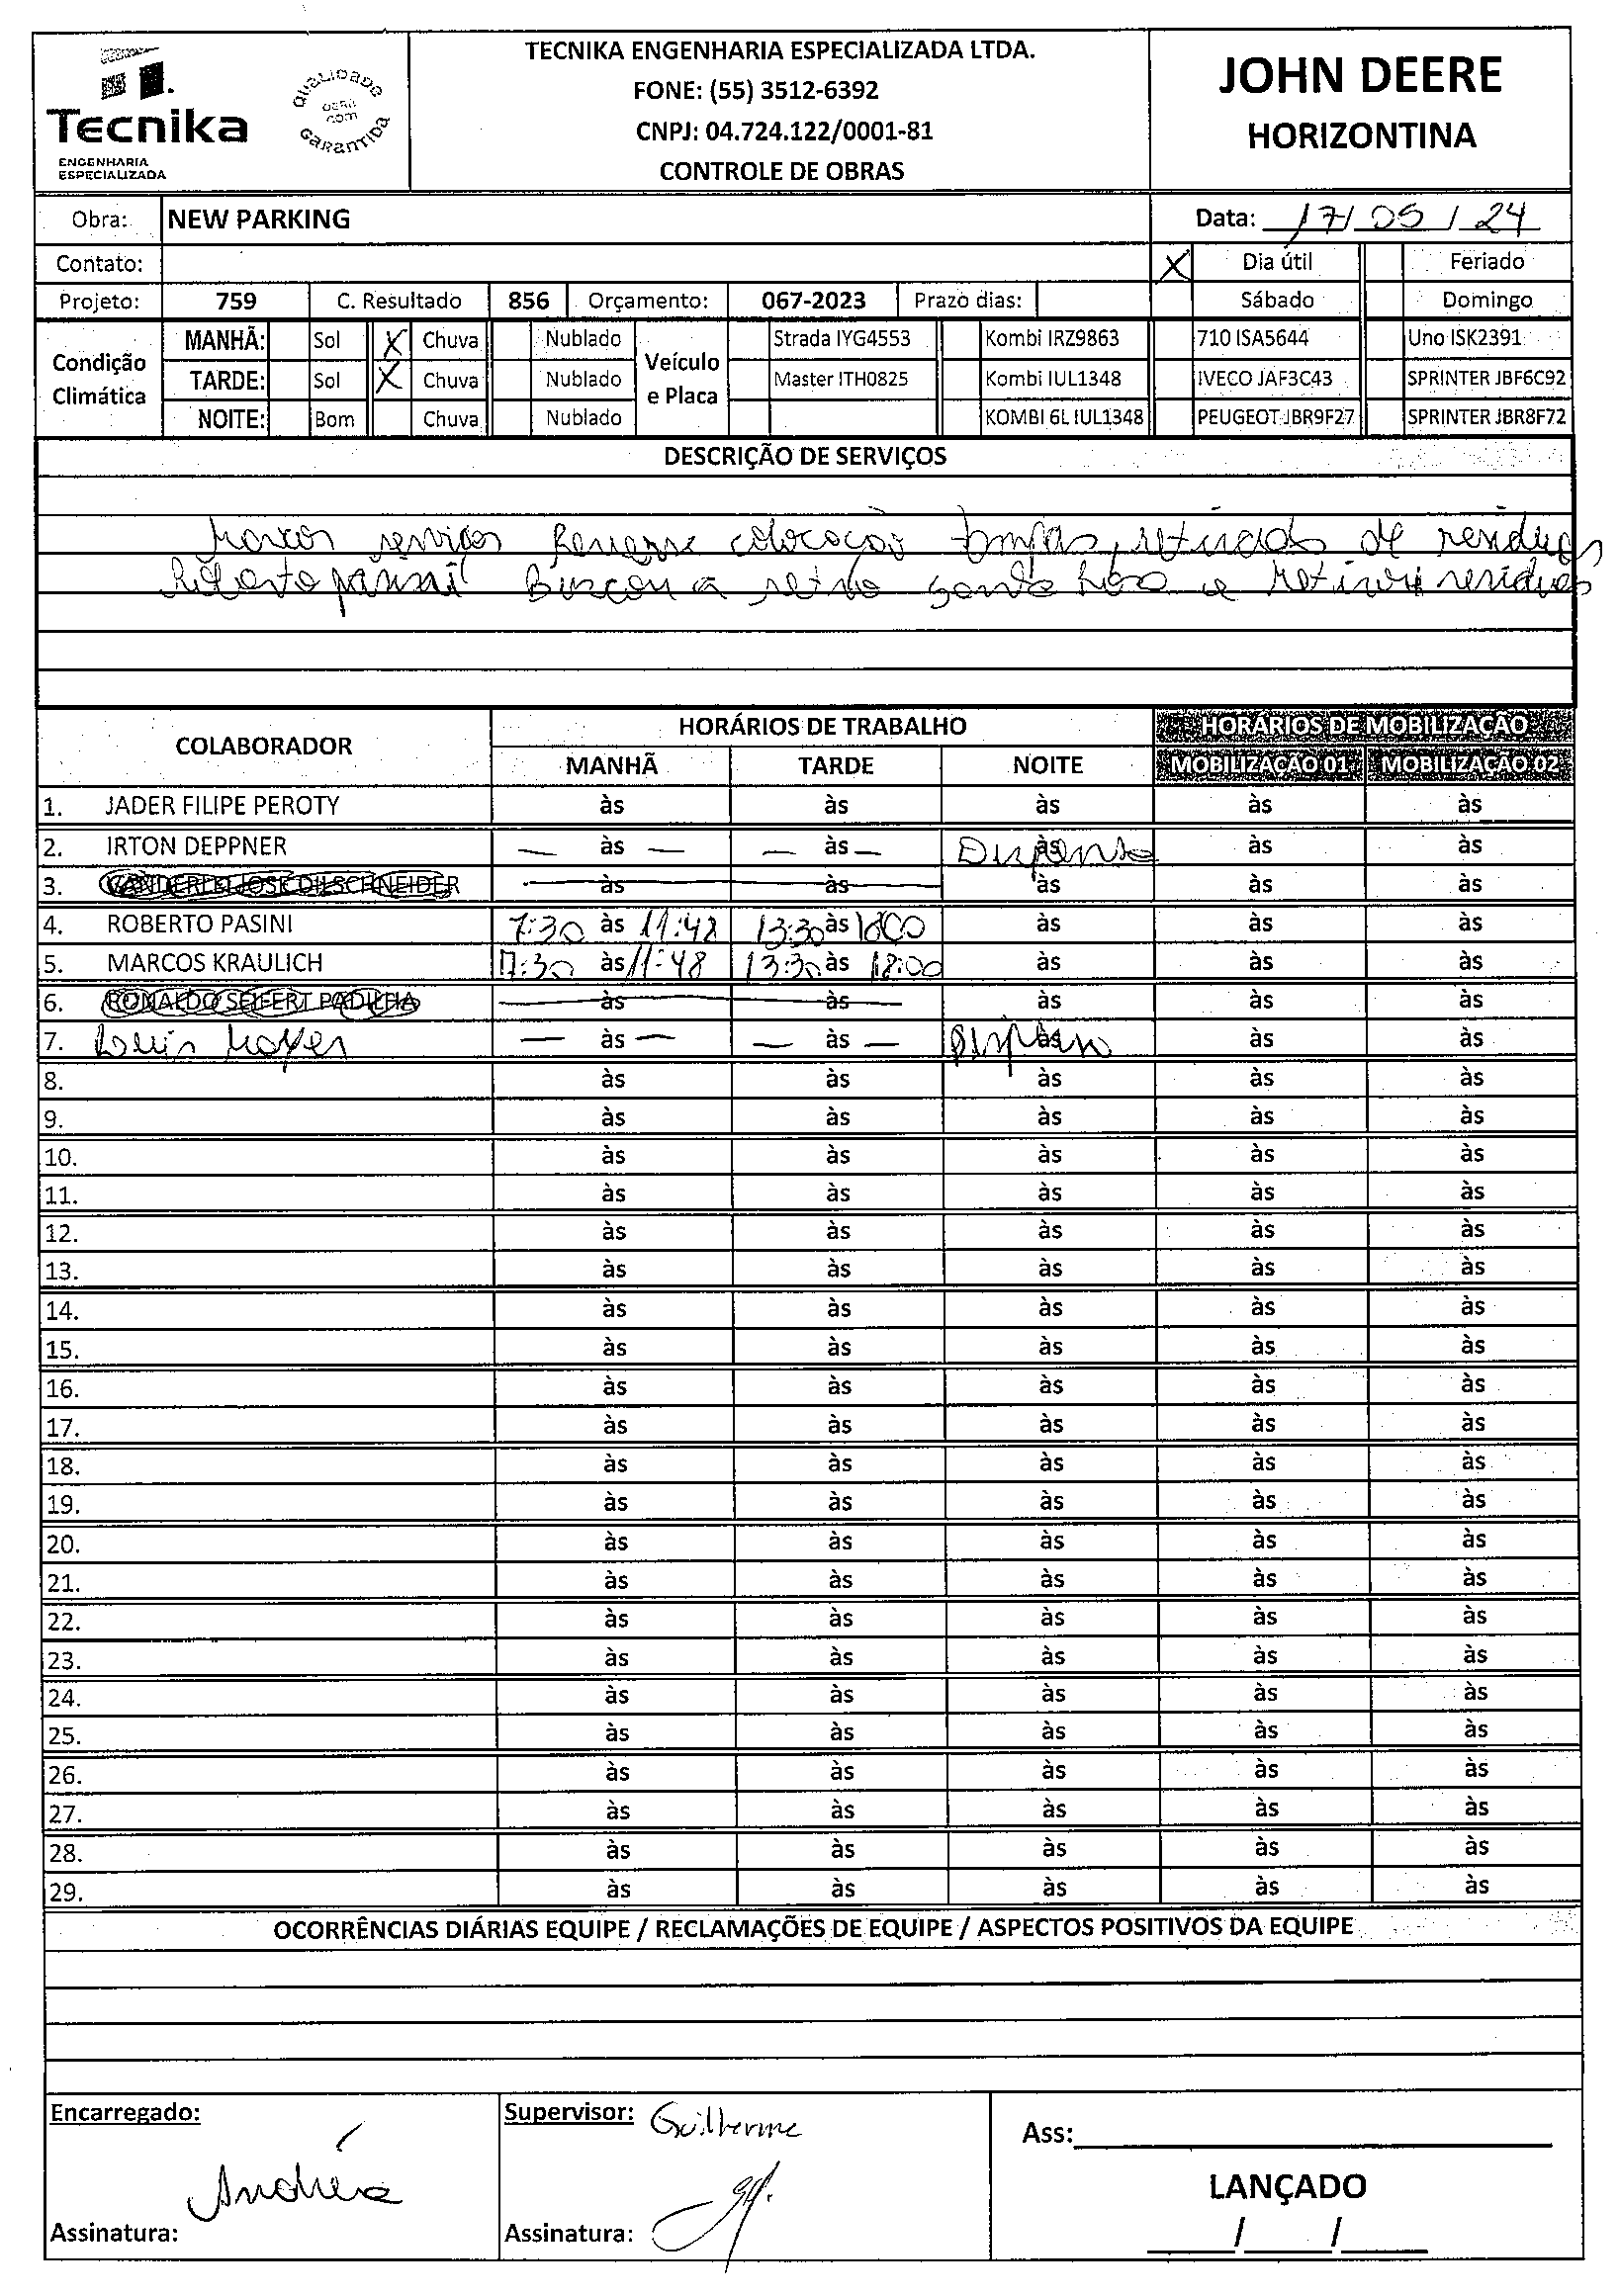 Tecnika
ENGENHARIA
ESPECIALIZADA
QUALIDADE
OBRA
COM
GARANTIDA
TECNIKA ENGENHARIA ESPECIALIZADA LTDA.
FONE: (55) 3512-6392
CNPJ: 04.724.122/0001-81
CONTROLE DE OBRAS
JOHN DEERE
HORIZONTINA
Obra: NEW PARKING Data: 17/05/24
Contato: X Dia útil Feriado
Projeto: 759 C. Resultado 856 Orçamento: 067-2023 Prazo dias: Sábado Domingo
Condição Climática
MANHÃ: Sol X Chuva Nublado Veículo e Placa Strada IYG4553 Kombi IRZ9863 710 ISA5644 Uno ISK2391
TARDE: Sol X Chuva Nublado Master ITH0825 Kombi IUL1348 IVECO JAF3C43 SPRINTER JBF6C92
NOITE: Bom Chuva Nublado KOMBI 6L IUL1348 PEUGEOT JBR9F27 SPRINTER JBR8F72
DESCRIÇÃO DE SERVIÇOS
Marcos serviços colocação retirada de residuos
Roberto pasini Buscou a retro Santa Rosa e retirou residuos
COLABORADOR HORÁRIOS DE TRABALHO HORÁRIOS DE MOBILIZAÇÃO
MANHÃ TARDE NOITE MOBILIZAÇÃO 01 MOBILIZAÇÃO 02
1. JADER FILIPE PEROTY às às às às às
2. IRTON DEPPNER — às — — às — às Dispenso às às
3. VANDERLEI JOSE DILSCHNEIDER às às às às às
4. ROBERTO PASINI 7:30 às 11:48 13:30 às 18:00 às às às
5. MARCOS KRAULICH 7:30 às 11:48 13:30 às 18:00 às às às
6. RONALDO SEIFERT PADILHA às às às às às
7. — às — — às — às às às
8. às às às às às
9. às às às às às
10. às às às às às
11. às às às às às
12. às às às às às
13. às às às às às
14. às às às às às
15. às às às às às
16. às às às às às
17. às às às às às
18. às às às às às
19. às às às às às
20. às às às às às
21. às às às às às
22. às às às às às
23. às às às às às
24. às às às às às
25. às às às às às
26. às às às às às
27. às às às às às
28. às às às às às
29. às às às às às
OCORRÊNCIAS DIÁRIAS EQUIPE / RECLAMAÇÕES DE EQUIPE / ASPECTOS POSITIVOS DA EQUIPE
Encarregado: Supervisor: Guilherme Ass:
Andréia
LANÇADO
Assinatura: Assinatura: / /